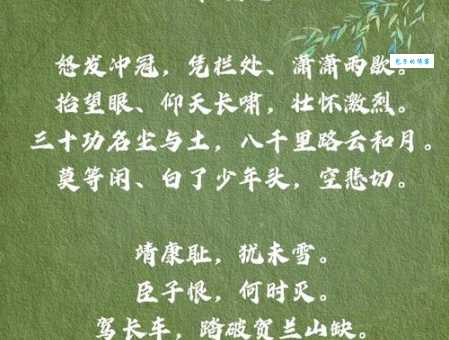 怒发冲冠，凭栏处、潇潇雨歇。
抬望眼、仰天长啸，壮怀激烈。
三十功名尘与土，八千里路云和月。
莫等闲、白了少年头，空悲切。
靖康耻，犹未雪。
臣子恨，何时灭。
驾长车，踏破贺兰山缺。